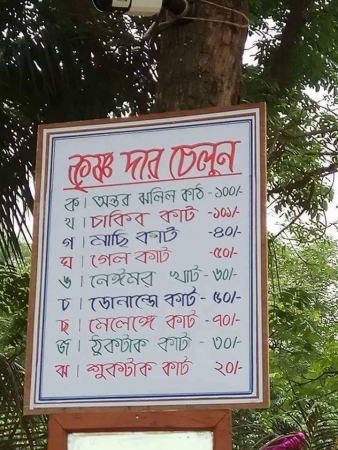 কৃষ্ণ দার চেলুন
ক। অন্তর ঝলিল কাঠ -১০০/-
খ। চাকিব কাট -১০১/-
গ। মাছি কাট -৪০/-
ঘ। গেল কাট -৫০/-
ঙ। নেঈমর খাট -৬০/-
চ। ডোনাল্ডো কাট -৫০/-
ছ। মেলেঙ্গে কাট -৭০/-
জ। ঠুকটাক কাট -৩০/-
ঝ। শুকটাক কাট ২০/-